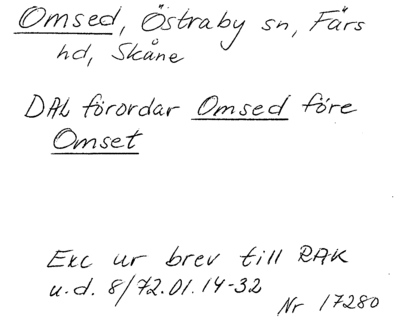 Omsed, Östraby sn, Färs
hd, Skåne
DAL förordar Omsed före
Omset
Exc ur brev till RAK
u.d. 8/72.01.14-32
Nr 17280